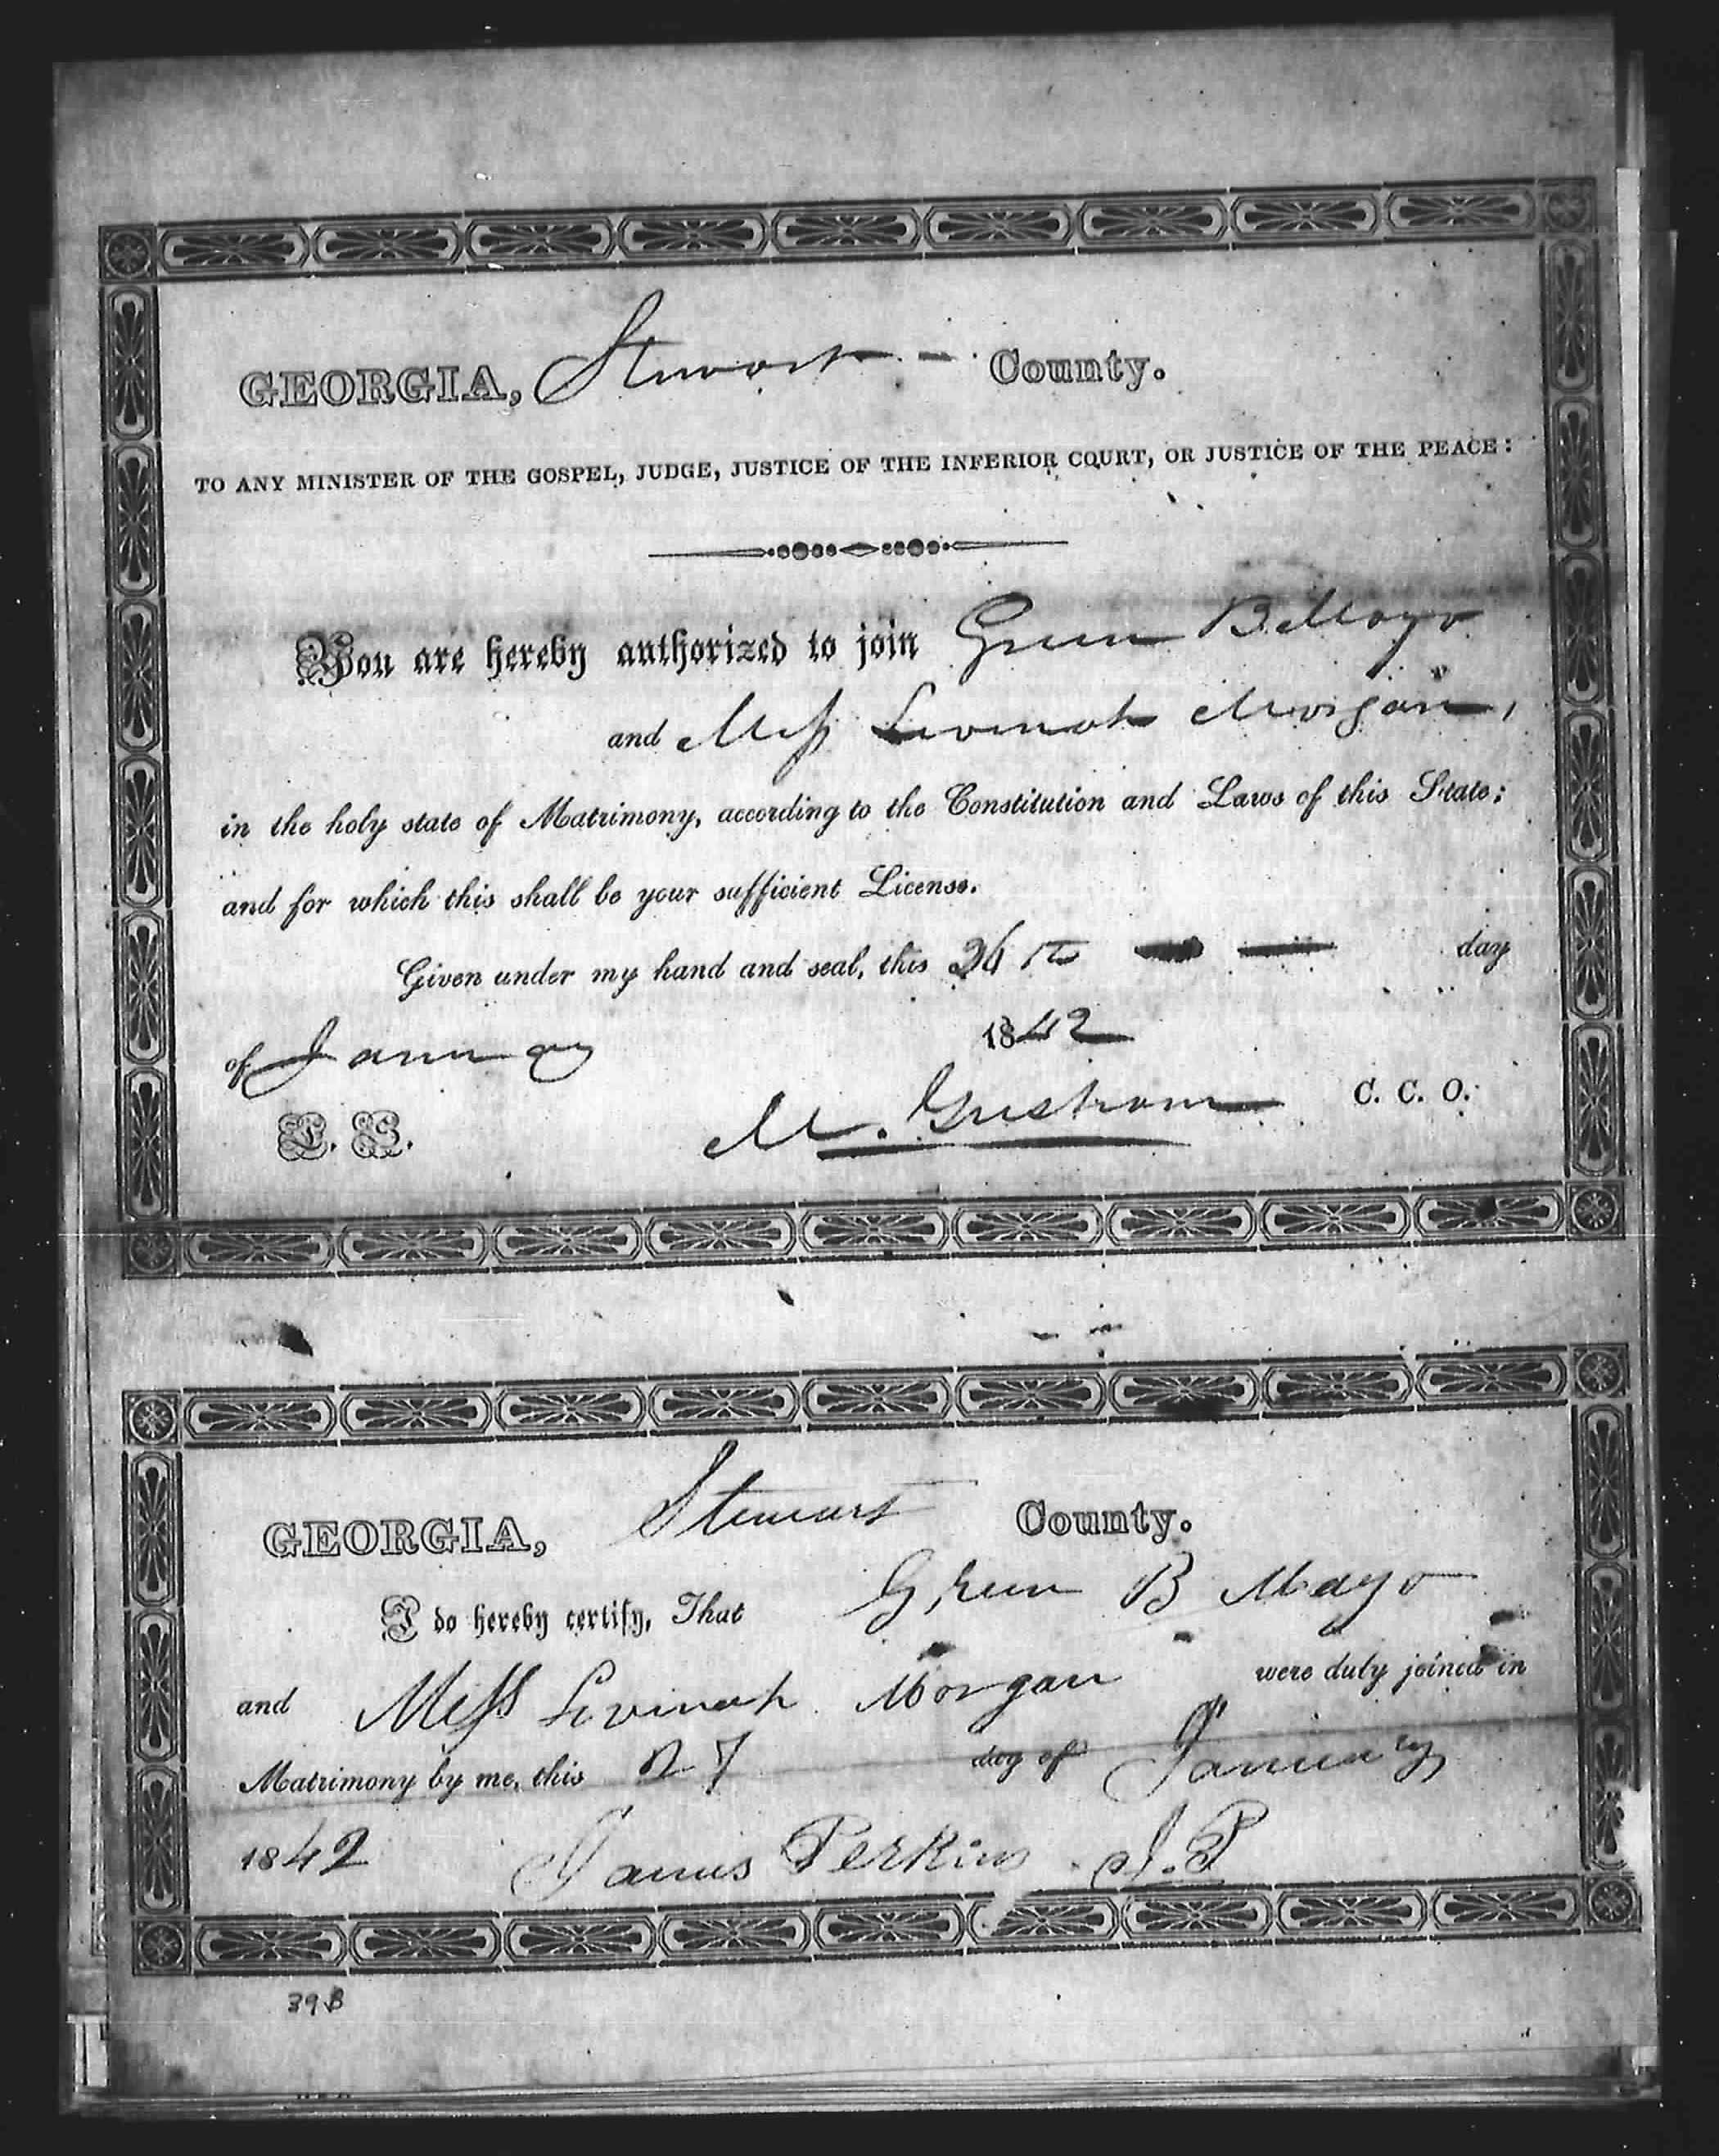 GEORGIA, Stewart - County.
TO ANY MINISTER OF THE GOSPEL, JUDGE, JUSTICE OF THE INFERIOR COURT, OR JUSTICE OF THE PEACE:
You are hereby authorized to join Green B. Mayo
and Miss Levinah Morgan,
in the holy state of Matrimony, according to the Constitution and Laws of this State;
and for which this shall be your sufficient License.
Given under my hand and seal, this 26th day
of January 1842
L. S. M. Gresham C. C. O.
GEORGIA, Stewart County.
I do hereby certify, That Green B Mayo
and Miss Levinah Morgan were duly joined in
Matrimony by me, this 27 day of January
1842 James Perkins J. P
39B